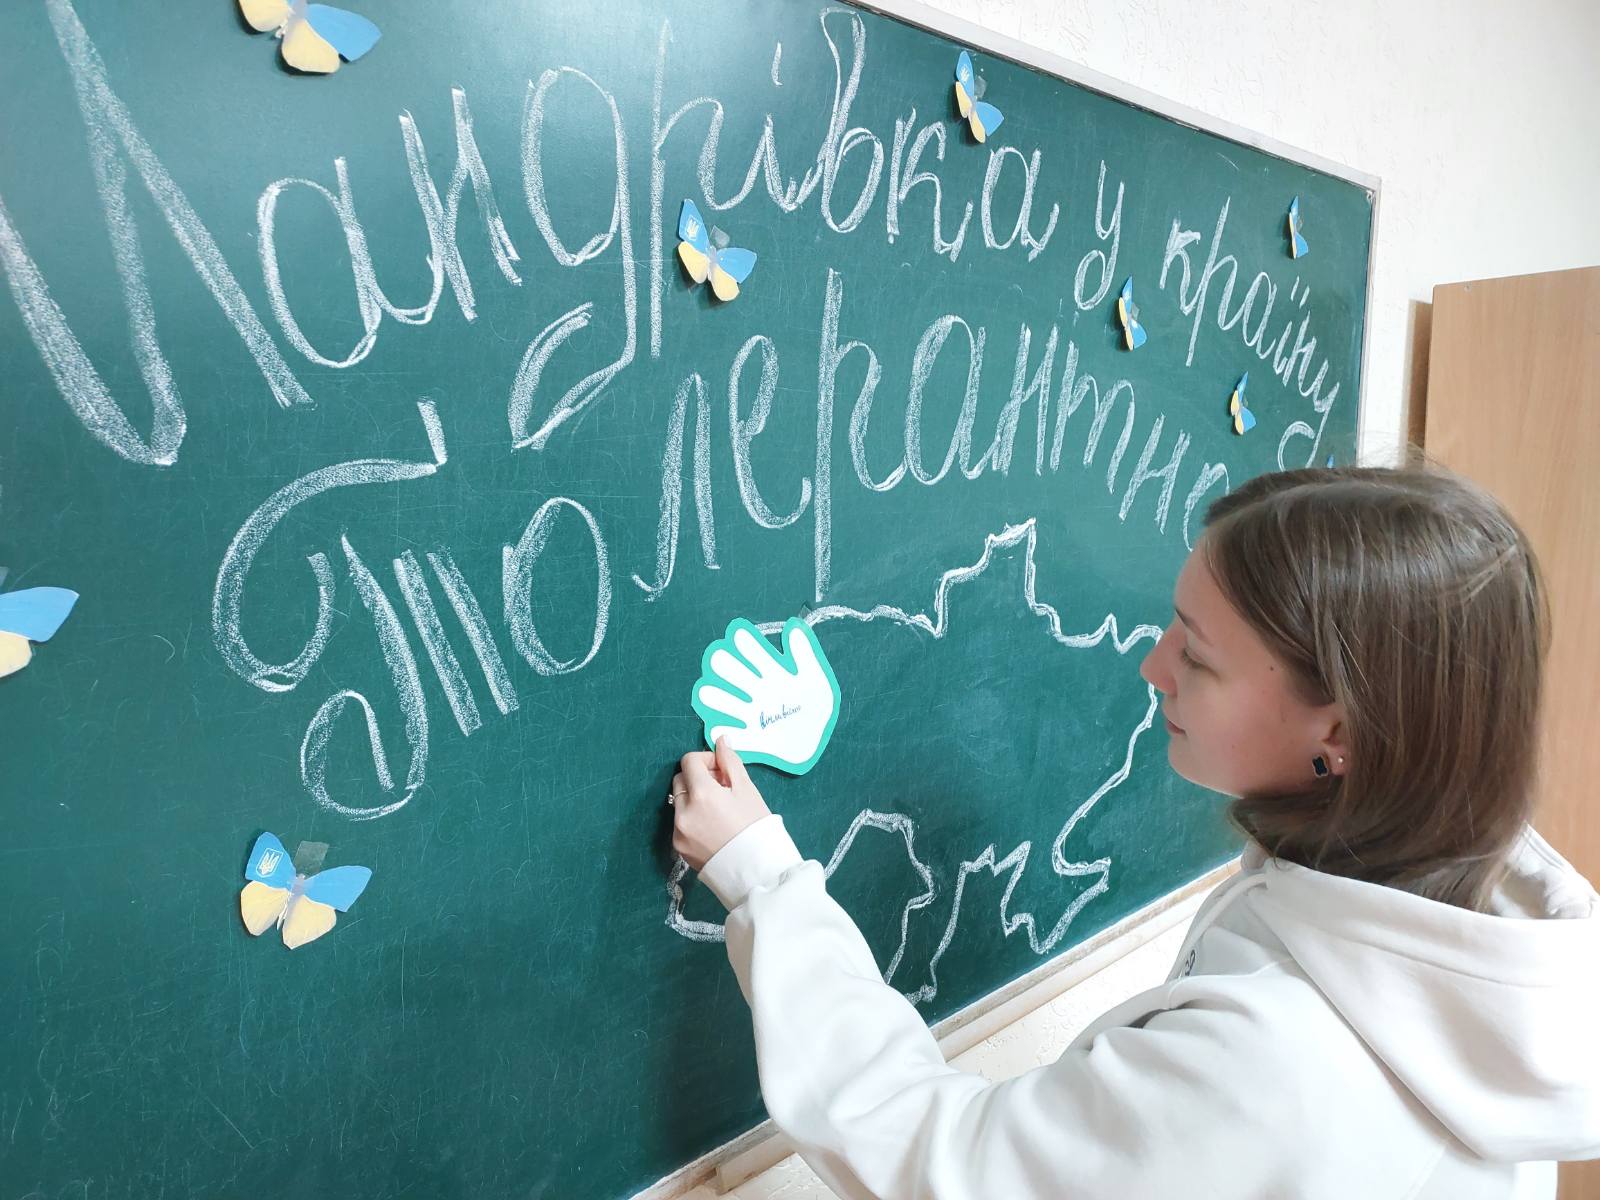 Мандрівка у країну
Толерантно